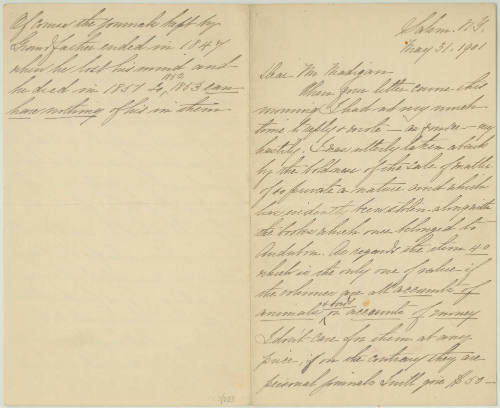 Salem. N.Y.
May 31. 1901
Dear Mr Madigan.
When your letter came this
morning I had not very much
time to reply & wrote — as you see — very
hastily. I was utterly taken aback
by the boldness of the sale of matter
of so private a nature and which
has evidently been stolen along with
the books which once belonged to
Audubon. As regards the item 40
which is the only one of value - if
the volumes are all accounts of
animals & birds or accounts of money
I don't care for them at any
price; if on the contrary they are
personal journals I will give $50—
Of course the journals kept by
Grandfather ended in 1847
when he lost his mind and
he died in 1851 so, 1862 1863 can
have nothing of his in them